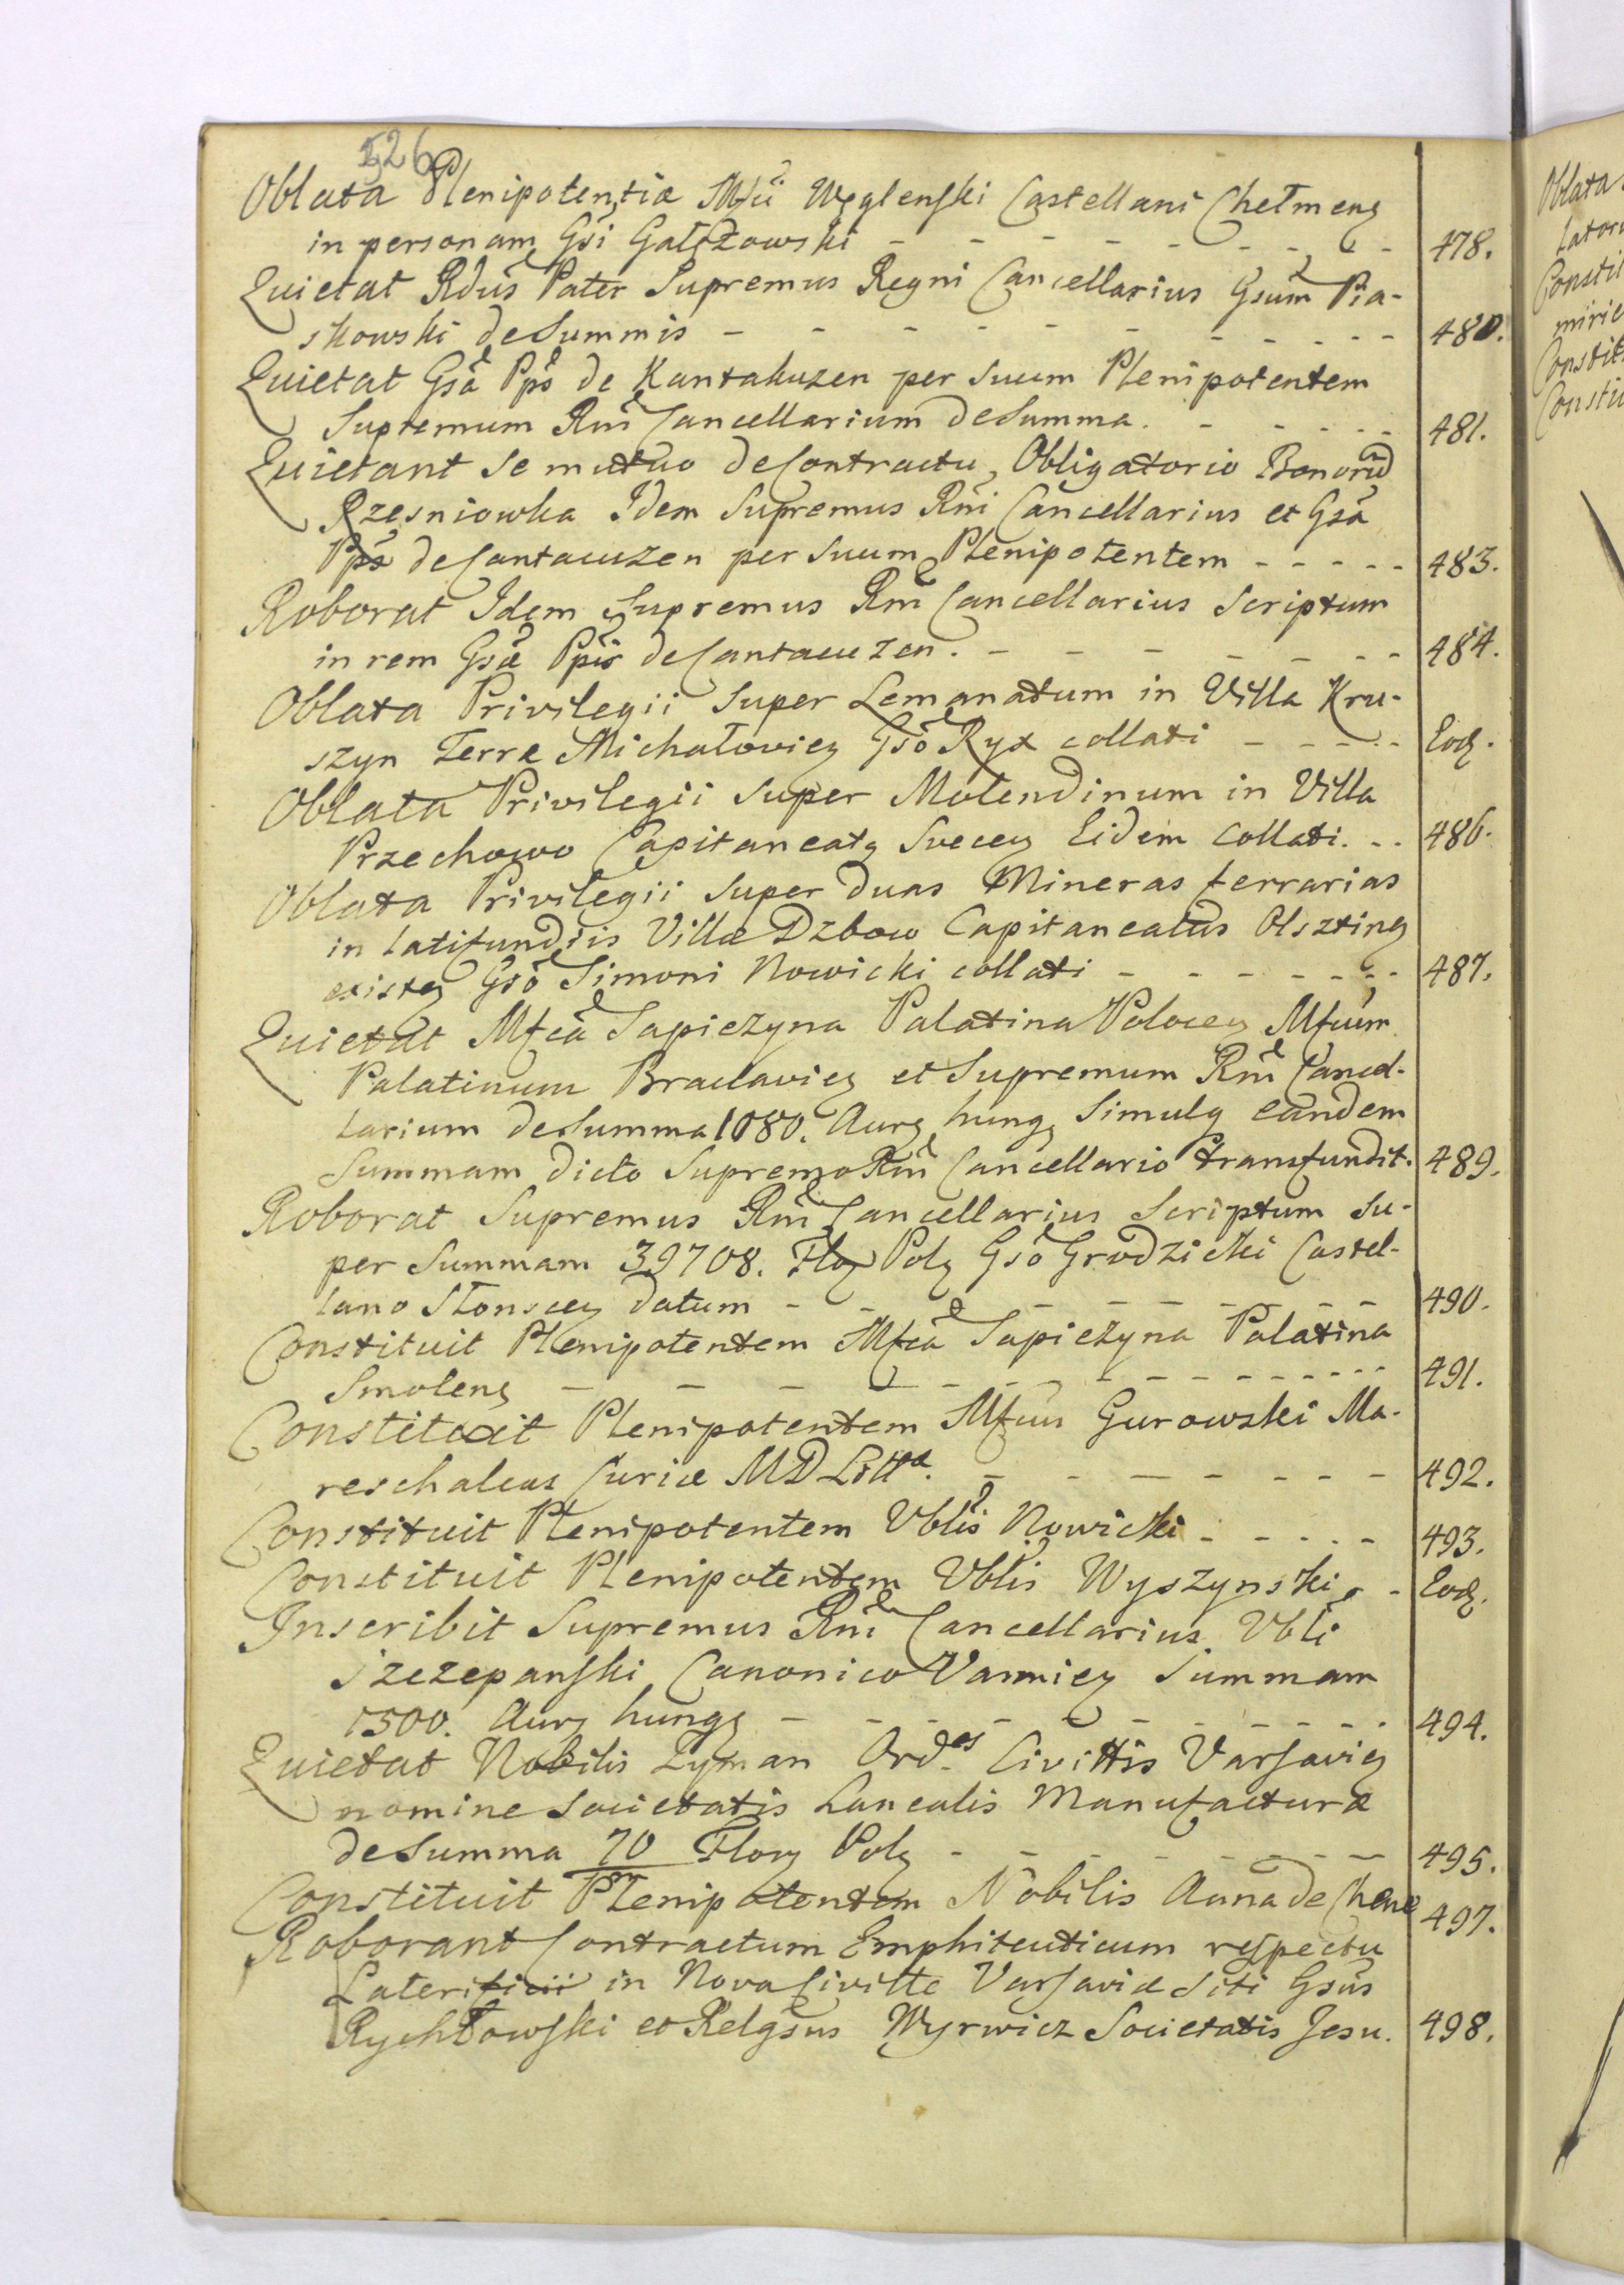 526
Oblata Plenipotentiæ Mfci Węglenski Castellani Chełmenȝ
in personam Gsi Gałęzowski - - - - - - - - - 478.
Quietat Rdus Pater Supremus Regni Cancellarius Gsum Pia-
skowski de Summis - - - - - - - - - - - 480.
Quietat Gsa Pps de Kantakuzen per Suum Plenipotentem
Supremum Rni Cancellarium de Summa. - - - - - 481.
Quietant Se mutuo de Contractu Obligatorio Bonorũ
Rzesniowka Idem Supremus Rni Cancellarius et Gsa
Pps de Cantacuzen per Suum Plenipotentem - - - - - 483.
Roborat Idem Supremus Rni Cancellarius Scriptum
in rem Gsæ Ppis de Cantacuzen. - - - - - - - 484.
Oblata Privilegii Super Lemanatum in Villa Kru-
szyn Terræ Michałovieȝ Gso Ryx collati - - - - - Eodȝ.
Oblata Privilegii Super Molendinum in Villa
Przechowo Capitaneatȝ Sveceȝ Eidem Collati. - - 486.
Oblata Privilegii Super duas Mineras ferrarias
in latifundiis Villæ Dzbow Capitaneatus Olsztinȝ
existeȝ Gso Simoni Nowicki collati - - - - - - - 487.
Quietat Mfca Sapiezyna Palatina Poloceȝ Mfcum
Palatinum Braclavieȝ et Supremum Rni Cancel-
larium de Summa 1080. Aurȝ hungȝ Simulȝ eandem
Summam dicto Supremo Rni Cancellario transfundit. 489.
Roborat Supremus Rni Cancellarius Scriptum Su-
per Summam 39708. Floȝ Polȝ Gso Grodzicki Castel-
lano Słonsceȝ datum - - - - - - - - 490.
Constituit Plenipotentem Mfca Sapiezyna Palatina
Smolenȝ - - - - - - - - - - - - - - 491.
Constituit Plenipotentem Mfcus Gurowski Ma-
reschalcus Curiæ MD Littæ. - - - - - - - - 492.
Constituit Plenipotentem Vblis Nowicki - - - - - 493.
Constituit Plenipotentem Vblis Wyszynski - - Eodȝ.
Inscribit Supremus Rni Cancellarius Vbli
Szczepanski Canonico Varmieȝ Summam
1500. Aurȝ hungȝ - - - - - - - - - - - 494.
Quietat Nobilis Zyman Ordes Civittis Varsavieȝ
nomine Societatis Lanealis Manufacturæ
de Summa 70/m Florȝ Polȝ - - - - - - - - 495.
Constituit Plenipotentem Nobilis Anna de Chene 497.
Roborant Contractum Emphiteuticum respectu
Laterificii in Nova Civitte Varsaviæ Siti Gsus
Rychłowski et Relgsus Wyrwicz Societatis Jesu. 498.